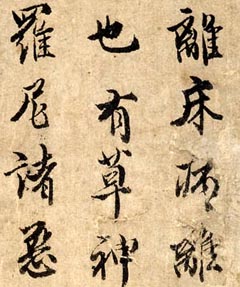 離床離
也有草神
羅尼諸惡